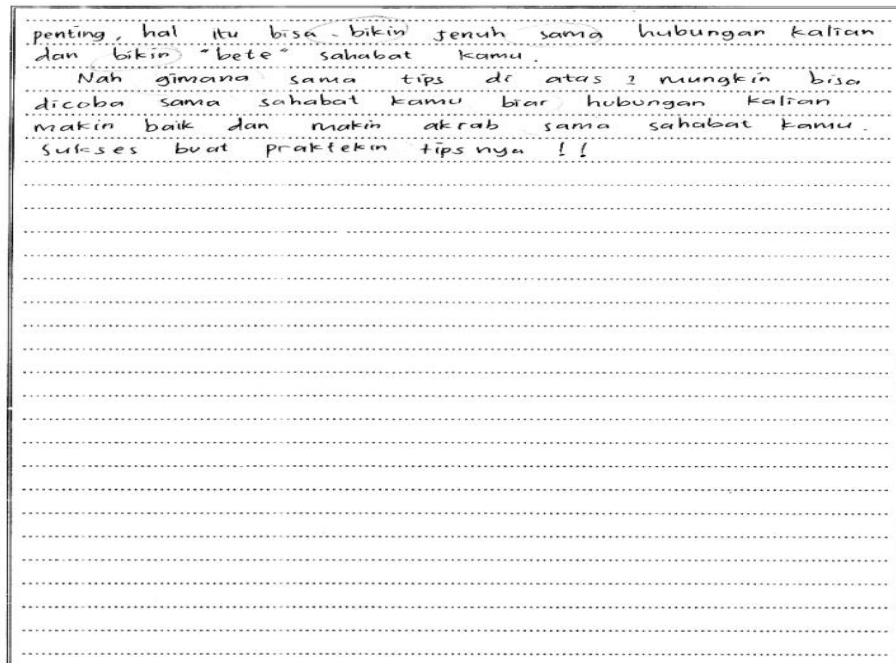 penting, hal itu bisa bikin jenuh sama hubungan kalian
dan bikin "bete" sahabat kamu.
Nah gimana sama tips di atas? mungkin bisa
dicoba sama sahabat kamu biar hubungan kalian
makin baik dan makin akrab sama sahabat kamu.
Sukses buat praktekin tips nya !!